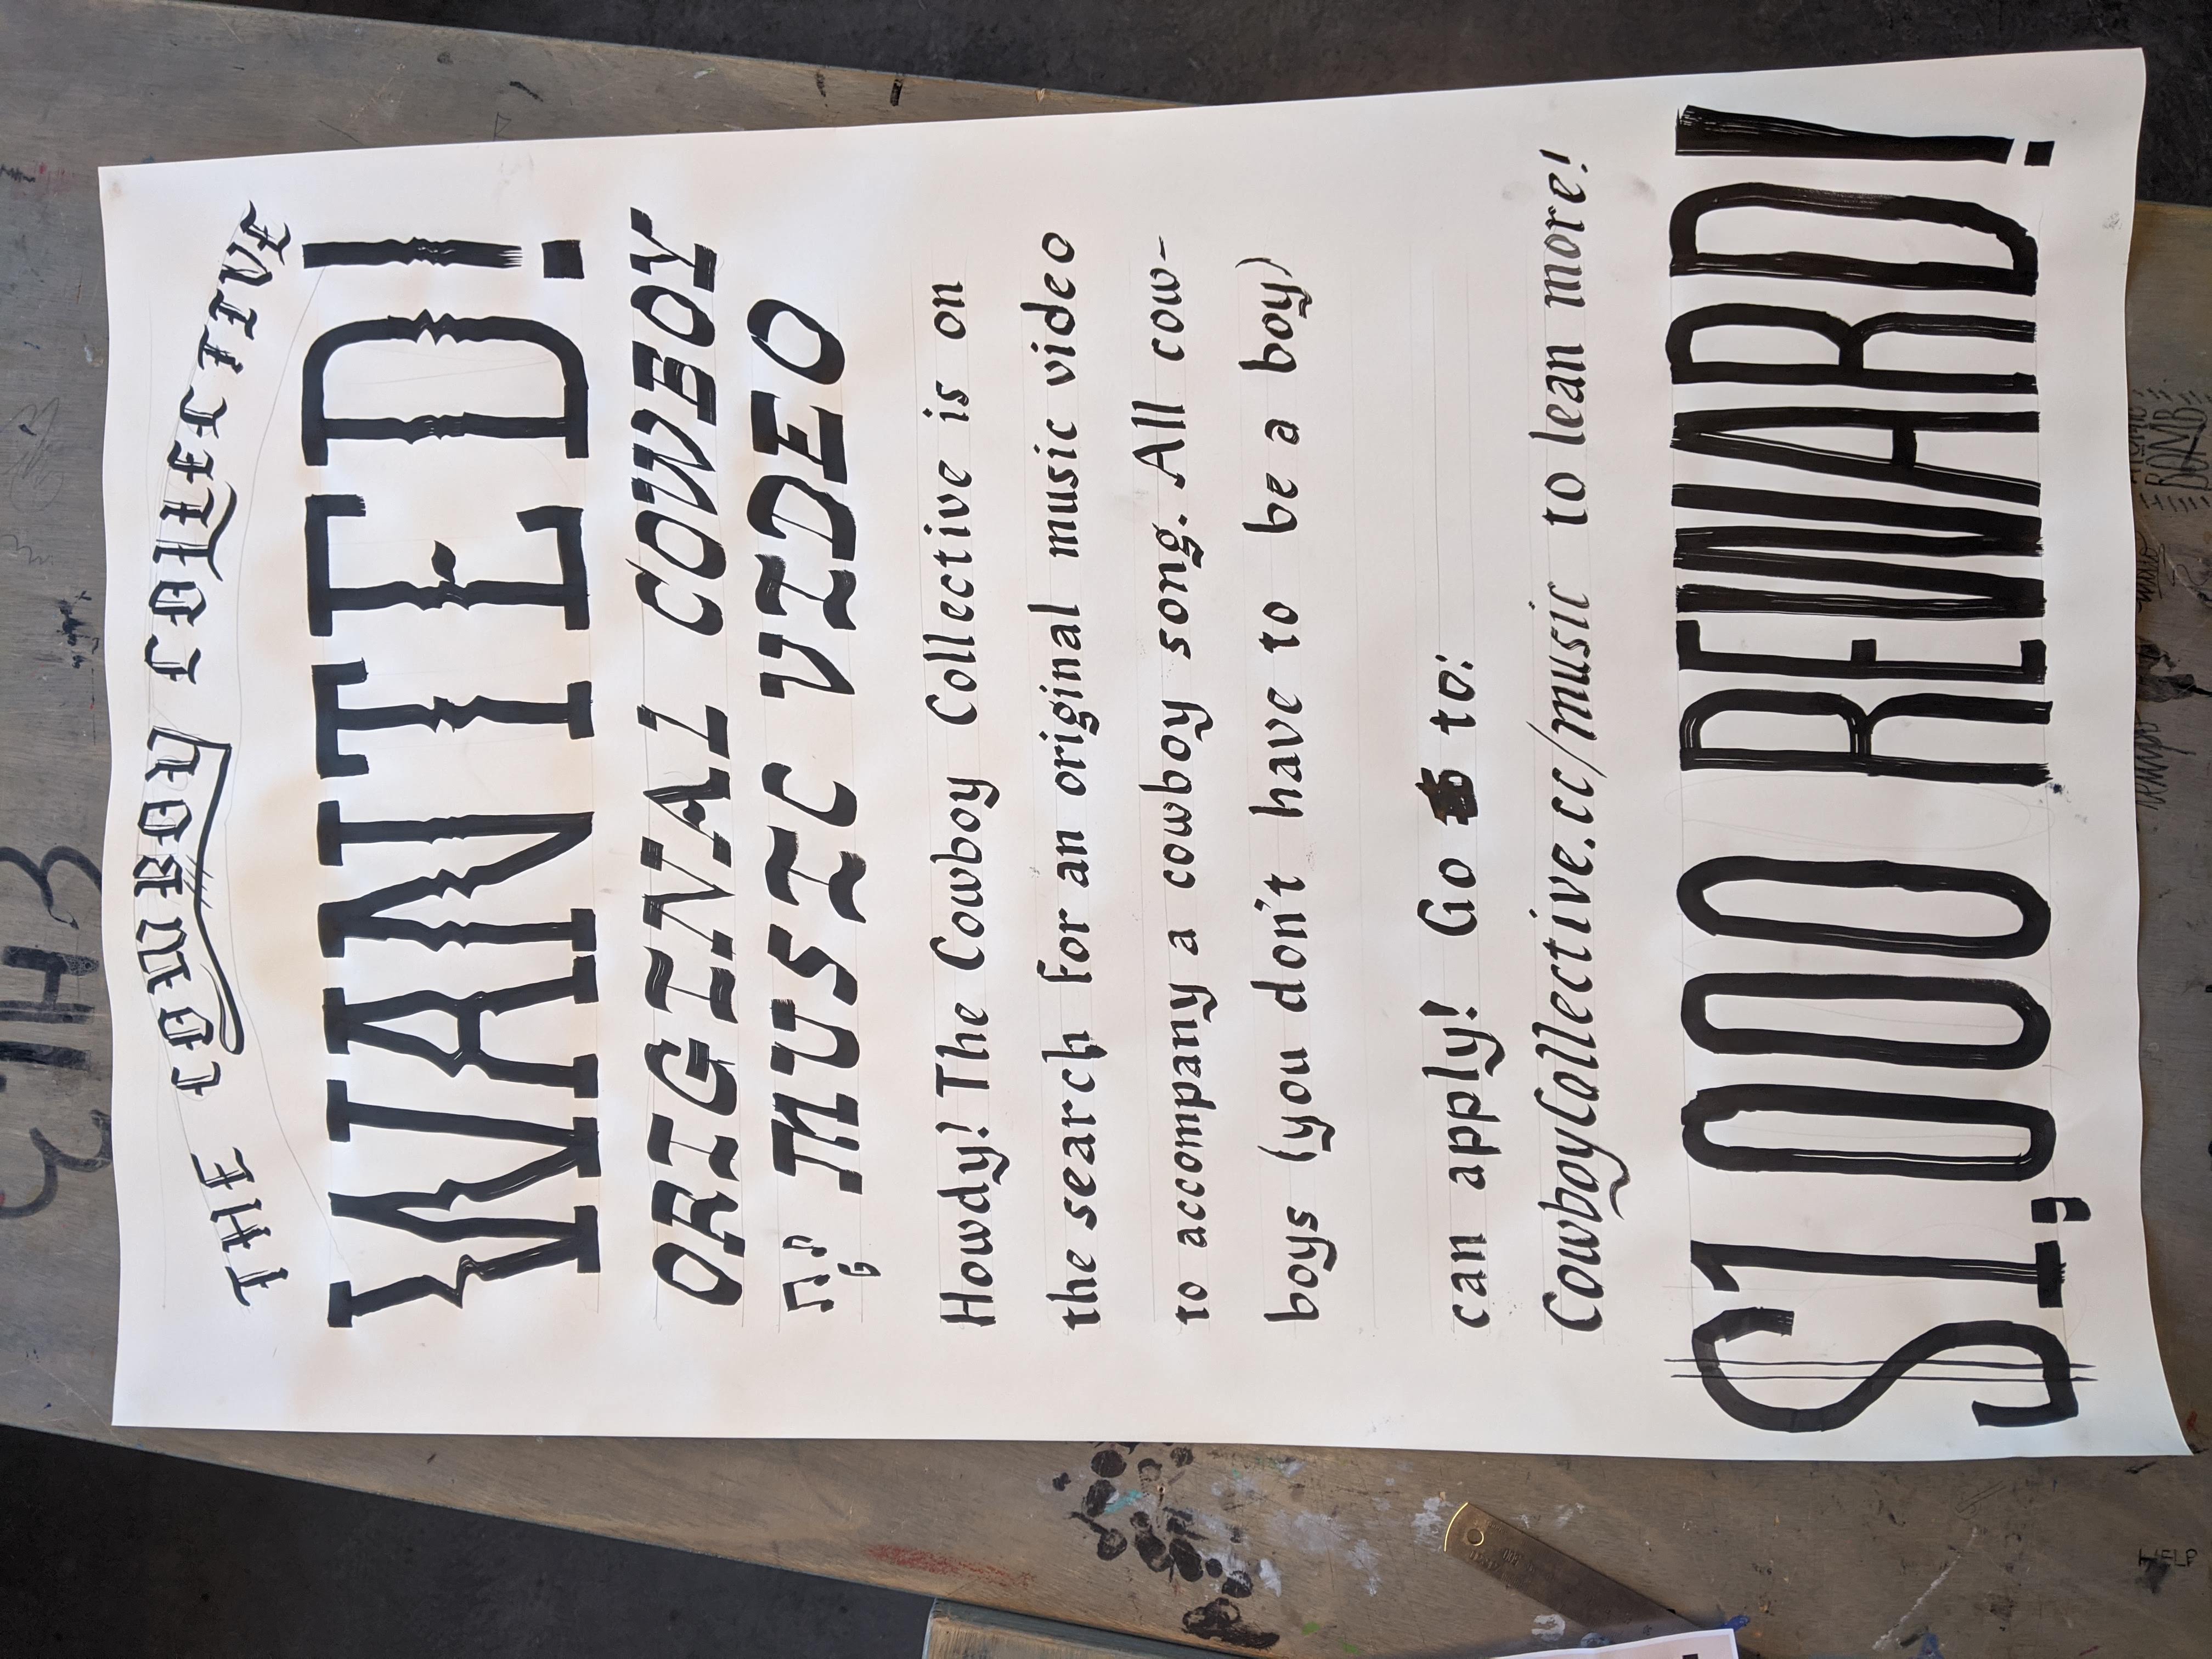 THE COWBOY COLLECTIVE
WANTED!
ORIGINAL COWBOY
MUSIC VIDEO
G
Howdy! The Cowboy Collective is on
the search for an original music video
to accompany a cowboy song. All cow-
boys (you don't have to be a boy)
can apply! Go to:
CowboyCollective.cc/music to lean more!
$1,000 REWARD!
HELP
tempo
BOMB